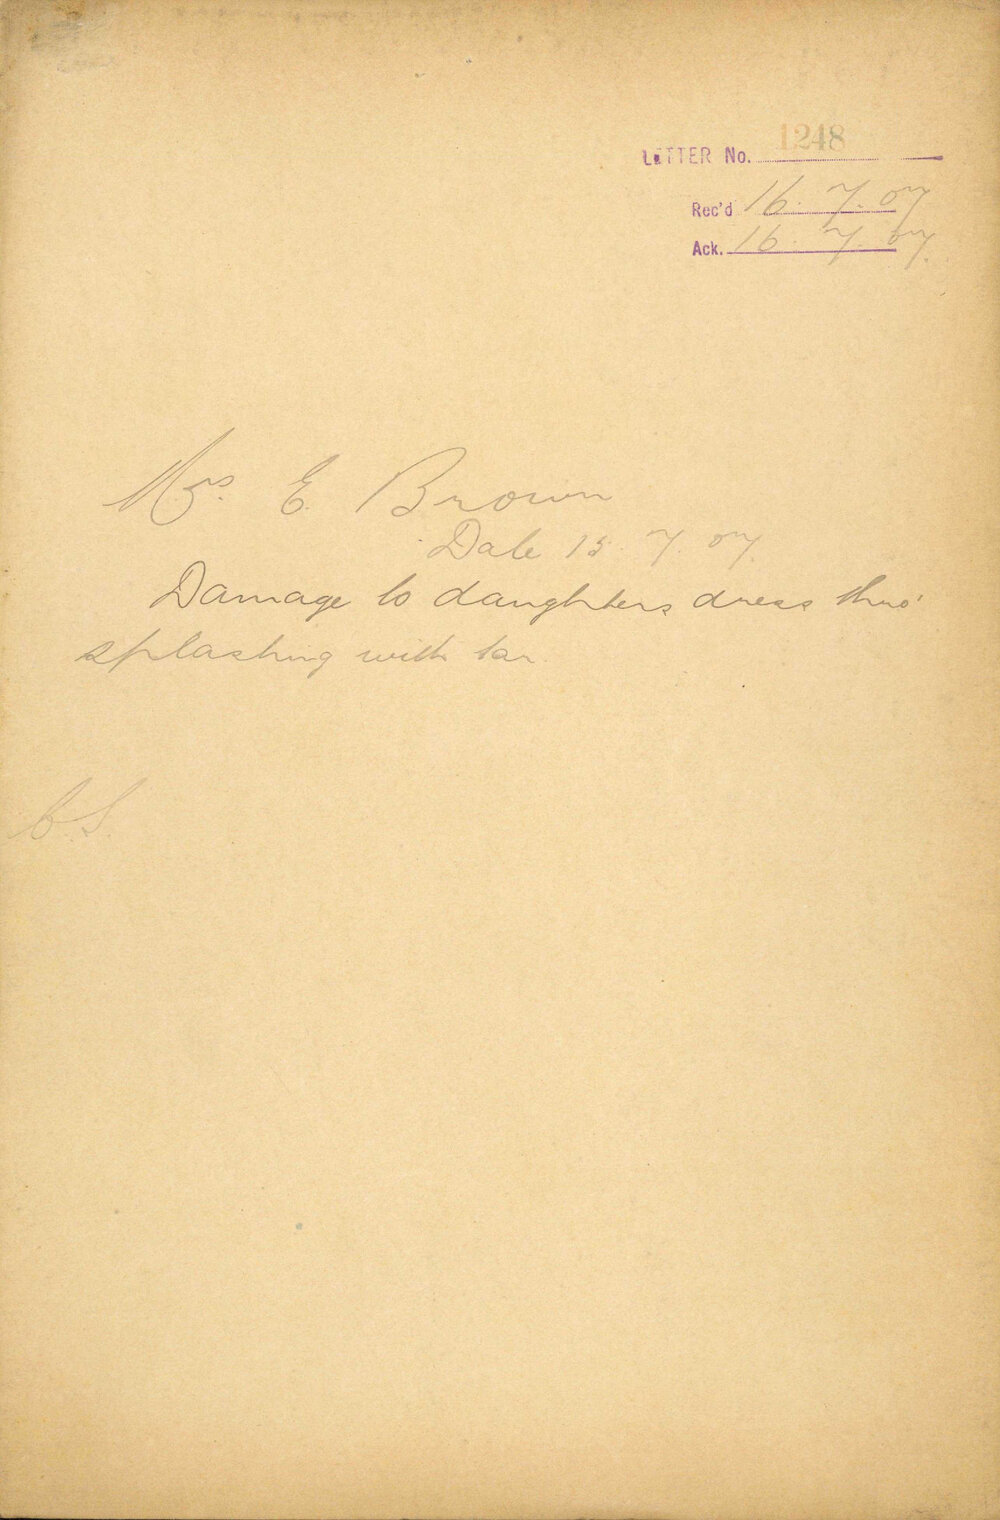 LETTER No. 1248
Rec'd 16. 7. 07
Ack. 16. 7. 07.
Mrs. E. Brown
Date 15. 7. 07.
Damage to daughters dress thro'
splashing with tar.
C.S.